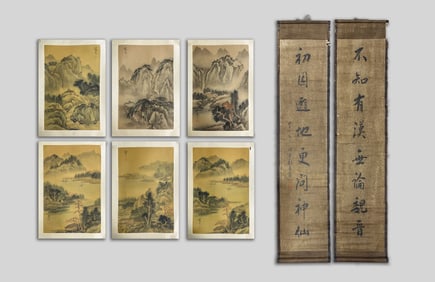 不知有漢無論魏晉
初因避地更問神仙